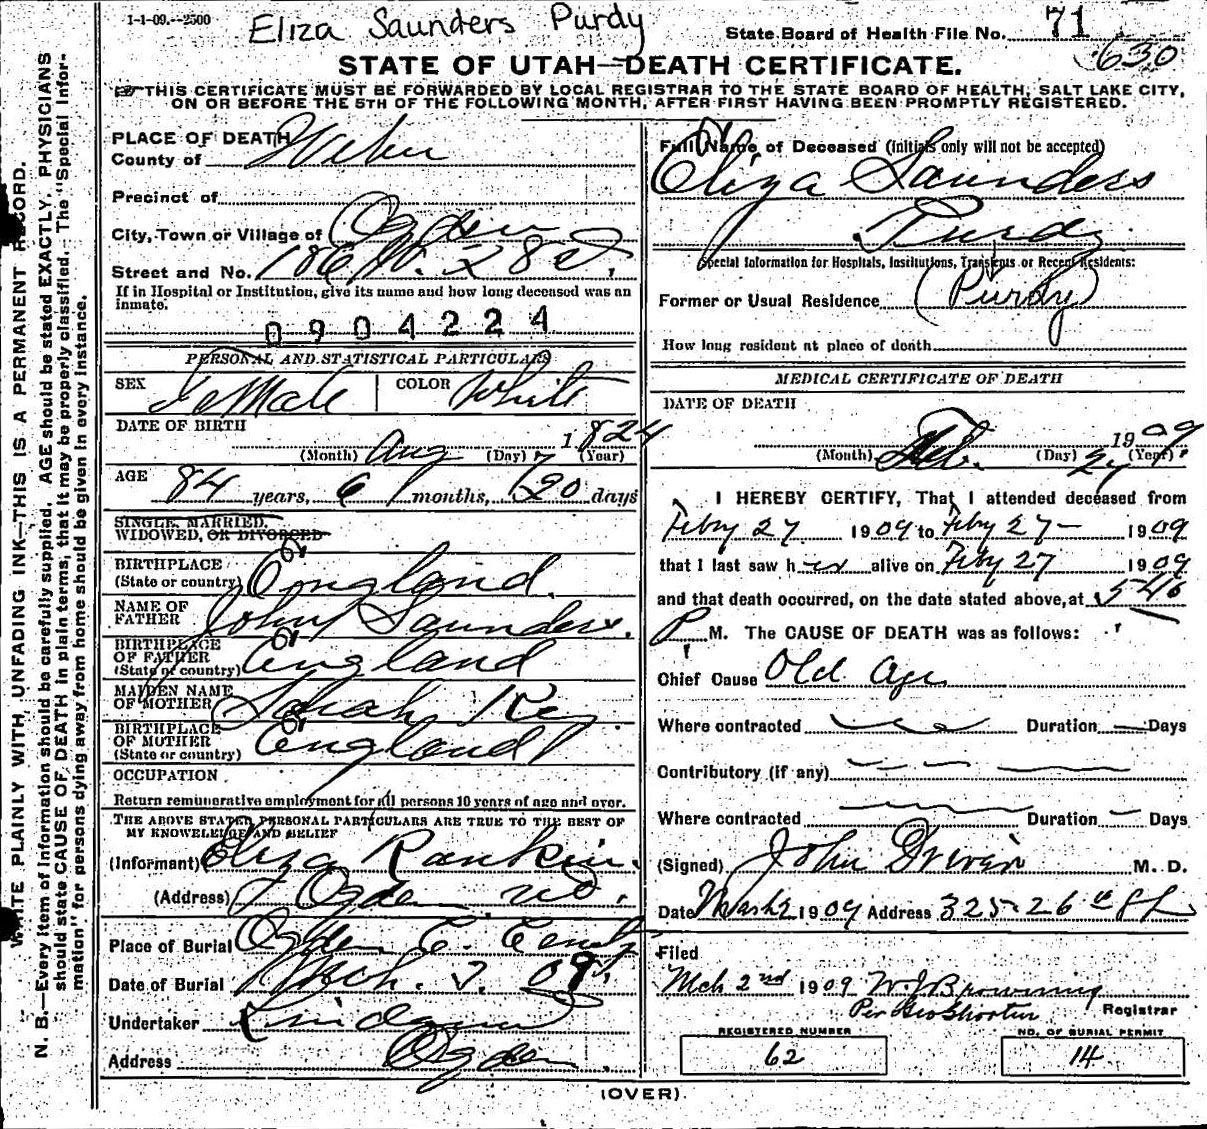 1-1-09.--2500
Eliza Saunders Purdy
State Board of Health File No. 71
630
STATE OF UTAH—DEATH CERTIFICATE.
THIS CERTIFICATE MUST BE FORWARDED BY LOCAL REGISTRAR TO THE STATE BOARD OF HEALTH, SALT LAKE CITY,
ON OR BEFORE THE 5TH OF THE FOLLOWING MONTH, AFTER FIRST HAVING BEEN PROMPTLY REGISTERED.
WRITE PLAINLY WITH UNFADING INK—THIS IS A PERMANENT RECORD.
N. B.—Every item of information should be carefully supplied. AGE should be stated EXACTLY. PHYSICIANS
should state CAUSE OF DEATH in plain terms, that it may be properly classified. The "Special Infor-
mation" for persons dying away from home should be given in every instance.
PLACE OF DEATH
County of Weber
Precinct of
City, Town or Village of Ogden
Street and No. 186 W. 28 St.
If in Hospital or Institution, give its name and how long deceased was an
inmate.
0904224
PERSONAL AND STATISTICAL PARTICULARS
SEX Female COLOR White
DATE OF BIRTH
Aug 7 1824
(Month) (Day) (Year)
AGE
84 years, 6 months, 20 days
SINGLE, MARRIED,
WIDOWED, OR DIVORCED
BIRTHPLACE
(State or country) England.
NAME OF
FATHER John Saunders.
BIRTHPLACE
OF FATHER
(State or country) England
MAIDEN NAME
OF MOTHER Sarah Key
BIRTHPLACE
OF MOTHER
(State or country) England
OCCUPATION
Return remunerative employment for all persons 10 years of age and over.
THE ABOVE STATED PERSONAL PARTICULARS ARE TRUE TO THE BEST OF
MY KNOWLEDGE AND BELIEF
(Informant) Eliza Rankin.
(Address) Ogden
Place of Burial Ogden C. Cemty
Date of Burial Mch. 2. 09.
Undertaker
Address Ogden
Full Name of Deceased (initials only will not be accepted)
Eliza Saunders
Purdy
Special Information for Hospitals, Institutions, Transients or Recent Residents:
Former or Usual Residence (Purdy)
How long resident at place of death
MEDICAL CERTIFICATE OF DEATH
DATE OF DEATH
Feb. 27 1909
(Month) (Day) (Year)
I HEREBY CERTIFY, That I attended deceased from
Feby 27 1909 to Feby 27 1909
that I last saw her alive on Feby 27 1909
and that death occurred, on the date stated above, at 5 46
P M. The CAUSE OF DEATH was as follows:
Chief Cause Old Age
Where contracted Duration — Days
Contributory (if any)
Where contracted Duration — Days
(Signed) John Driver M. D.
Date March 2 1909 Address 325-26th St
Filed
Mch 2nd 1909 W. J. Browning
Per Geo Shorten Registrar
REGISTERED NUMBER
62
NO. OF BURIAL PERMIT
14
(OVER).